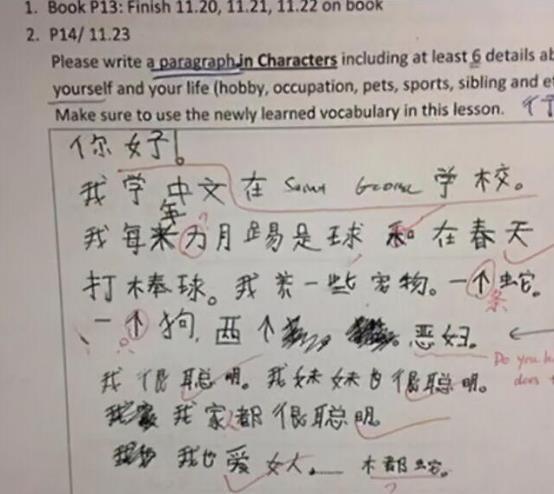 1. Book P13: Finish 11.20, 11.21, 11.22 on book
2. P14/ 11.23
Please write a paragraph in Characters including at least 6 details ab
yourself and your life (hobby, occupation, pets, sports, sibling and e
Make sure to use the newly learned vocabulary in this lesson.
你好!
我学中文在 Saint George 学校。
年
我每 月踢是球和在春天
打棒球。我养一些宠物。一个蛇。
条
一个狗,西个 。恶妇。
Do you h
does t
我很聪明。我妹妹也很聪明。
我家都很聪明。
我也爱女人
木都蛇。
?